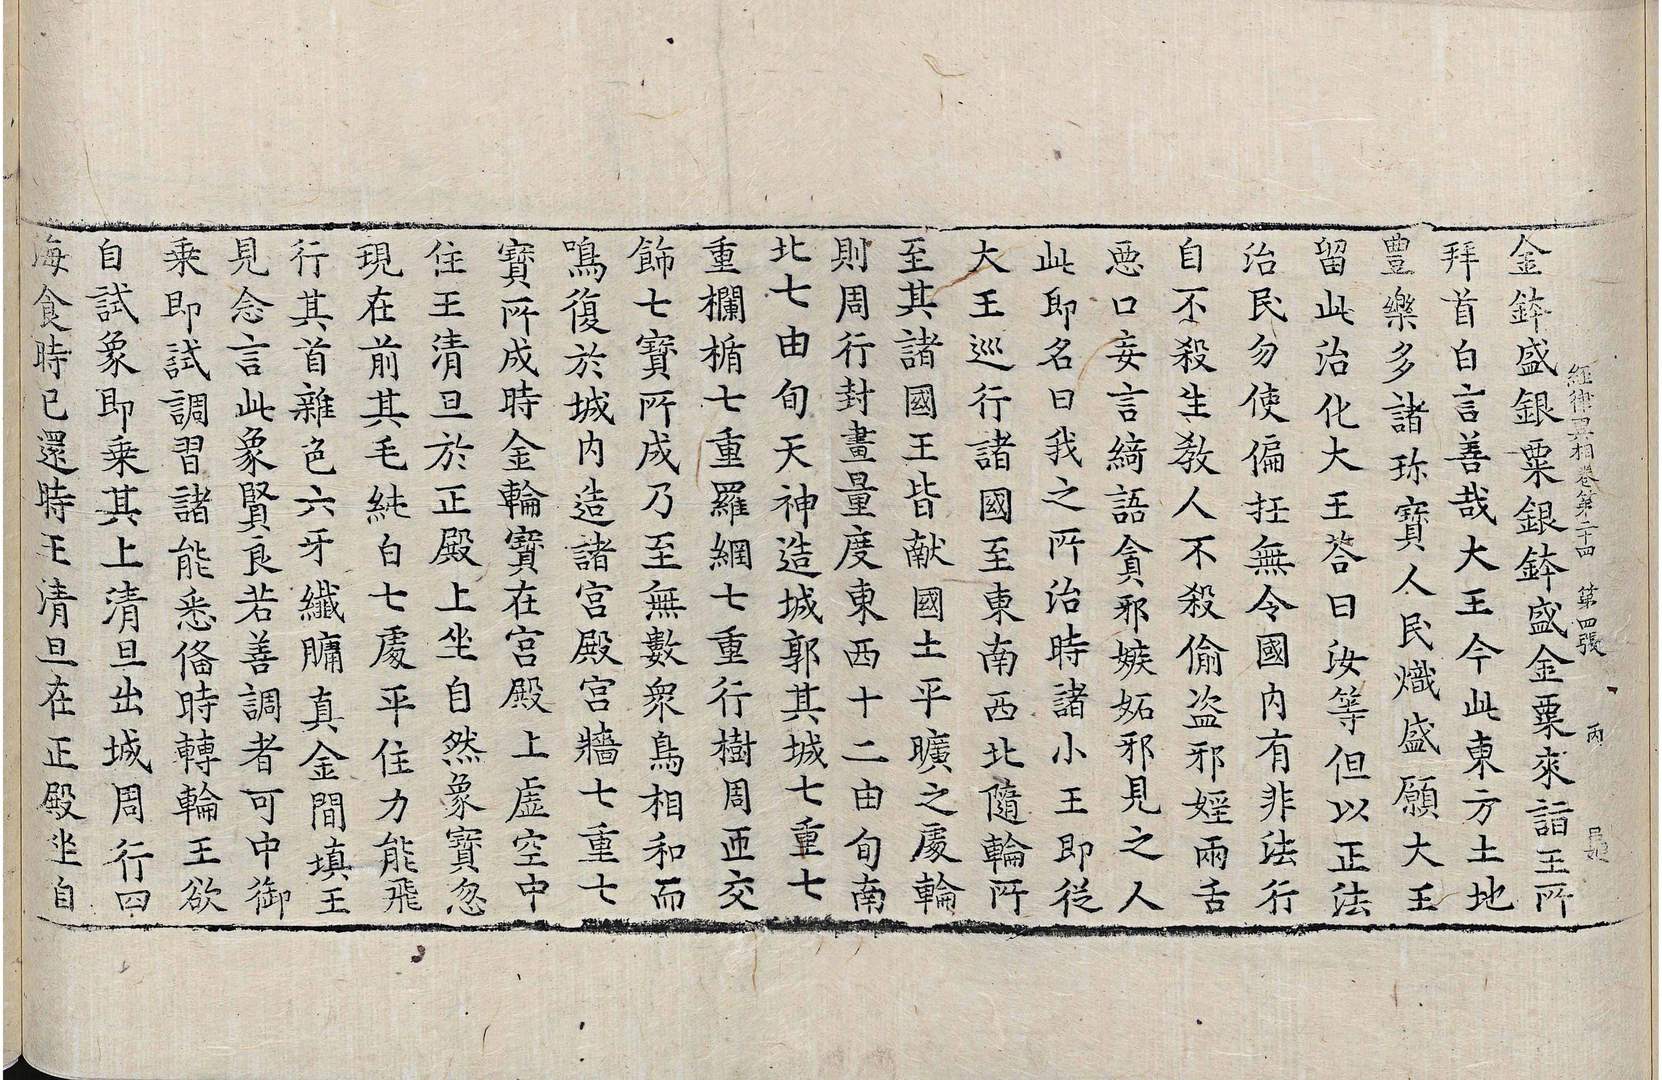 經律異相卷第二十四 第四張 丙
金鉢盛銀粟銀鉢盛金粟來詣王所
拜首白言善哉大王今此東方土地
豊樂多諸珎寶人民熾盛願大王
留此治化大王荅曰汝等但以正法
治民勿使偏抂無令國內有非法行
自不殺生教人不殺偷盜邪婬兩舌
惡口妄言綺語貪邪嫉妬邪見之人
此即名曰我之所治時諸小王即從
大王巡行諸國至東南西北隨輪所
至其諸國王皆献國土平曠之處輪
則周行封畫量度東西十二由旬南
北七由旬天神造城郭其城七重七
重欄楯七重羅網七重行樹周帀交
飾七寶所成乃至無數衆鳥相和而
鳴復於城內造諸宮殿宮牆七重七
寶所成時金輪寶在宮殿上虛空中
住王清旦於正殿上坐自然象寶忽
現在前其毛純白七處平住力能飛
行其首雜色六牙纖𦟛真金間塡王
見念言此象賢良若善調者可中御
乗即試調習諸能悉俻時轉輪王欲
自試象即乗其上清旦出城周行四
海食時已還時王清旦在正殿坐自